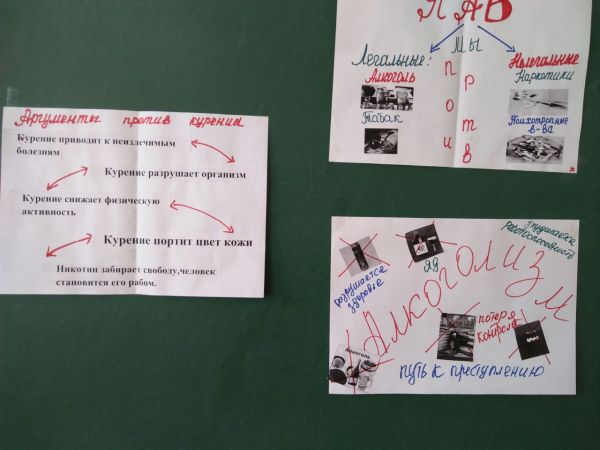 Аргументы против курения
Курение приводит к неизлечимым
болезням
Курение разрушает организм
Курение снижает физическую
активность
Курение портит цвет кожи
Никотин забирает свободу,человек
становится его рабом.
ПАВ
Легальные:
Алкоголь
Табак
Мы
против
Нелегальные
Наркотики
Психотропные
в-ва
Алкоголизм
разрушается
здоровье
яд
ухудшается
работоспособность
потеря
контроля
Алкоголь
путь к преступлению